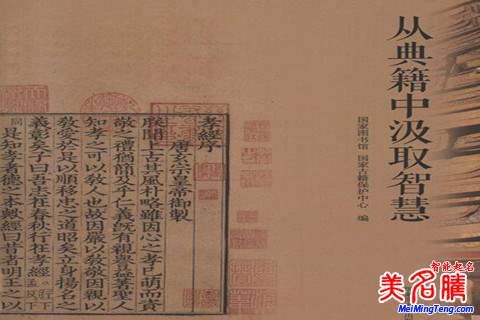 从典籍中汲取智慧
国家图书馆 国家古籍保护中心 编
孝經序
唐玄宗皇帝御製
朕聞上古其風朴略雖因心之孝已萌而資
敬之禮猶簡及乎仁義既有親譽益著聖人
知孝之可以教人也故因嚴以教敬因親以
教愛於是以順移忠之道昭矣立身揚名之
義彰矣子曰吾志在春秋行在孝經
是知孝者德之本歟經曰昔者明王之以
智能起名
美名騰
MeiMingTeng.Com